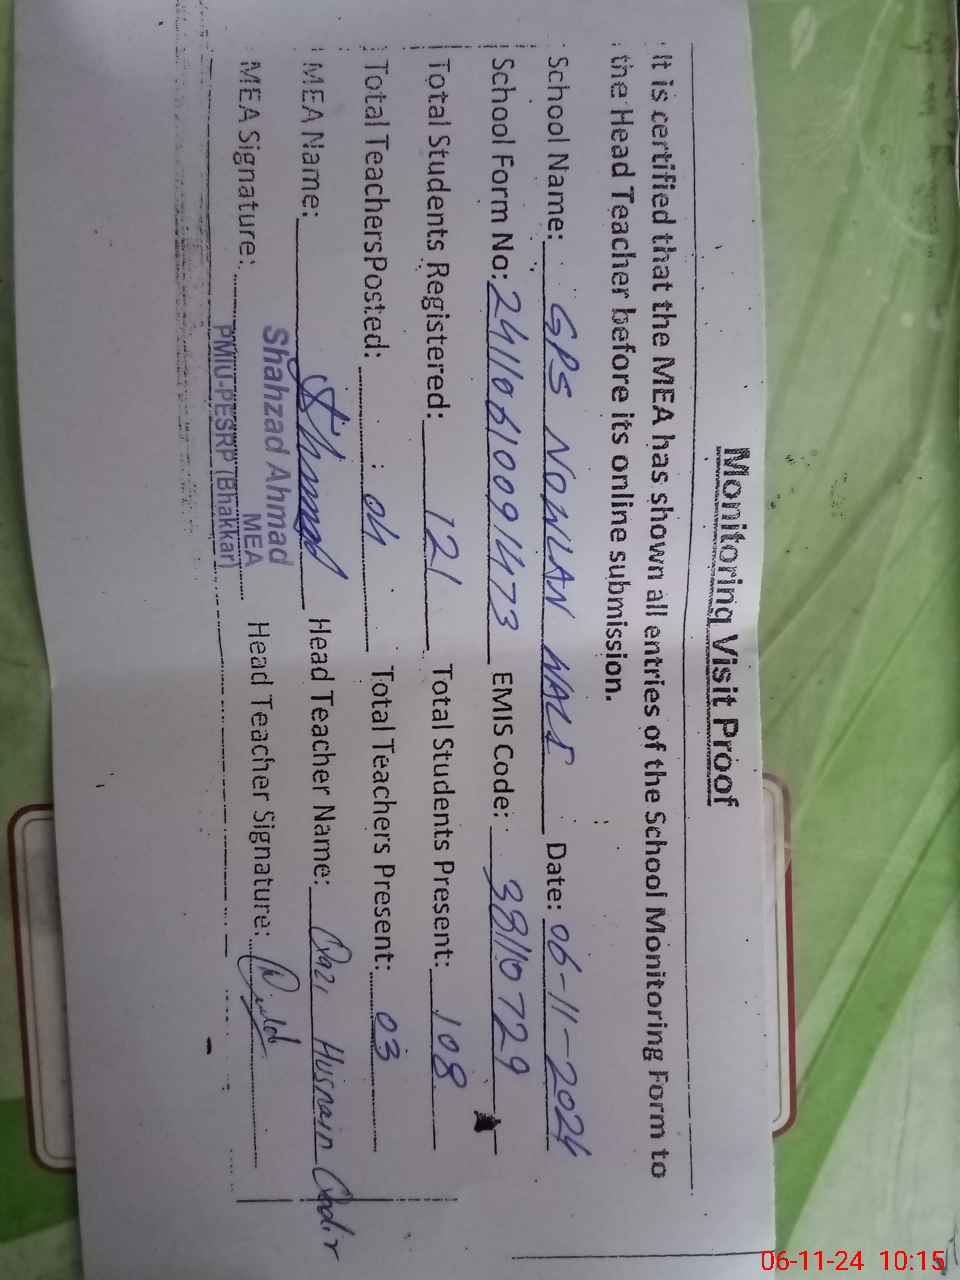 Monitoring Visit Proof
It is certified that the MEA has shown all entries of the School Monitoring Form to
the Head Teacher before its online submission.
School Name: GPS NOWLAN WALI Date: 06-11-2024
School Form No: 24110610091473 EMIS Code: 38110729
Total Students Registered: 121 Total Students Present: 108
Total TeachersPosted: 04 Total Teachers Present: 03
MEA Name: Head Teacher Name: Qazi Husnain Qadir
MEA Signature: Head Teacher Signature:
Shahzad Ahmad
MEA
PMIU-PESRP (Bhakkar)
06-11-24 10:15